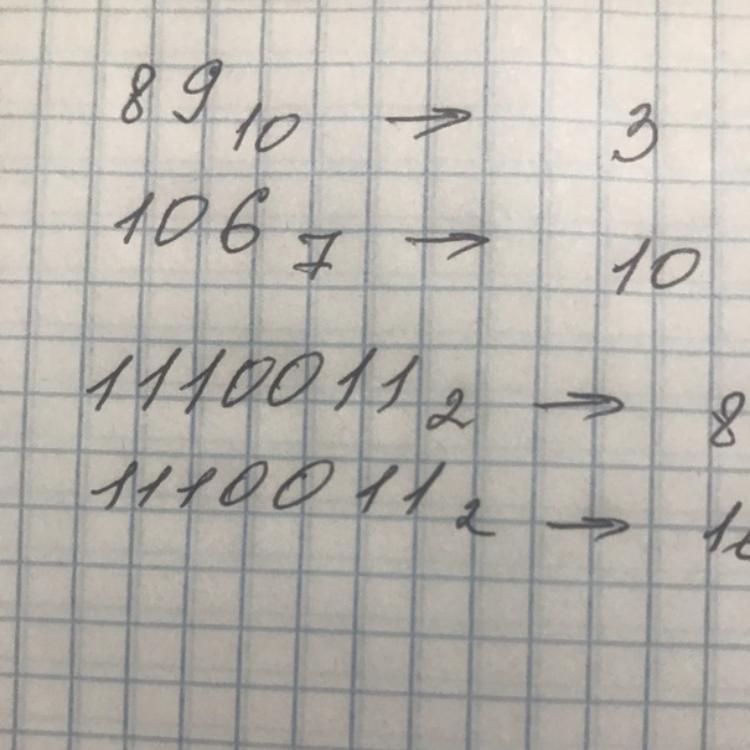 89₁₀ → 3
106₇ → 10
1110011₂ → 8
1110011₂ → 1